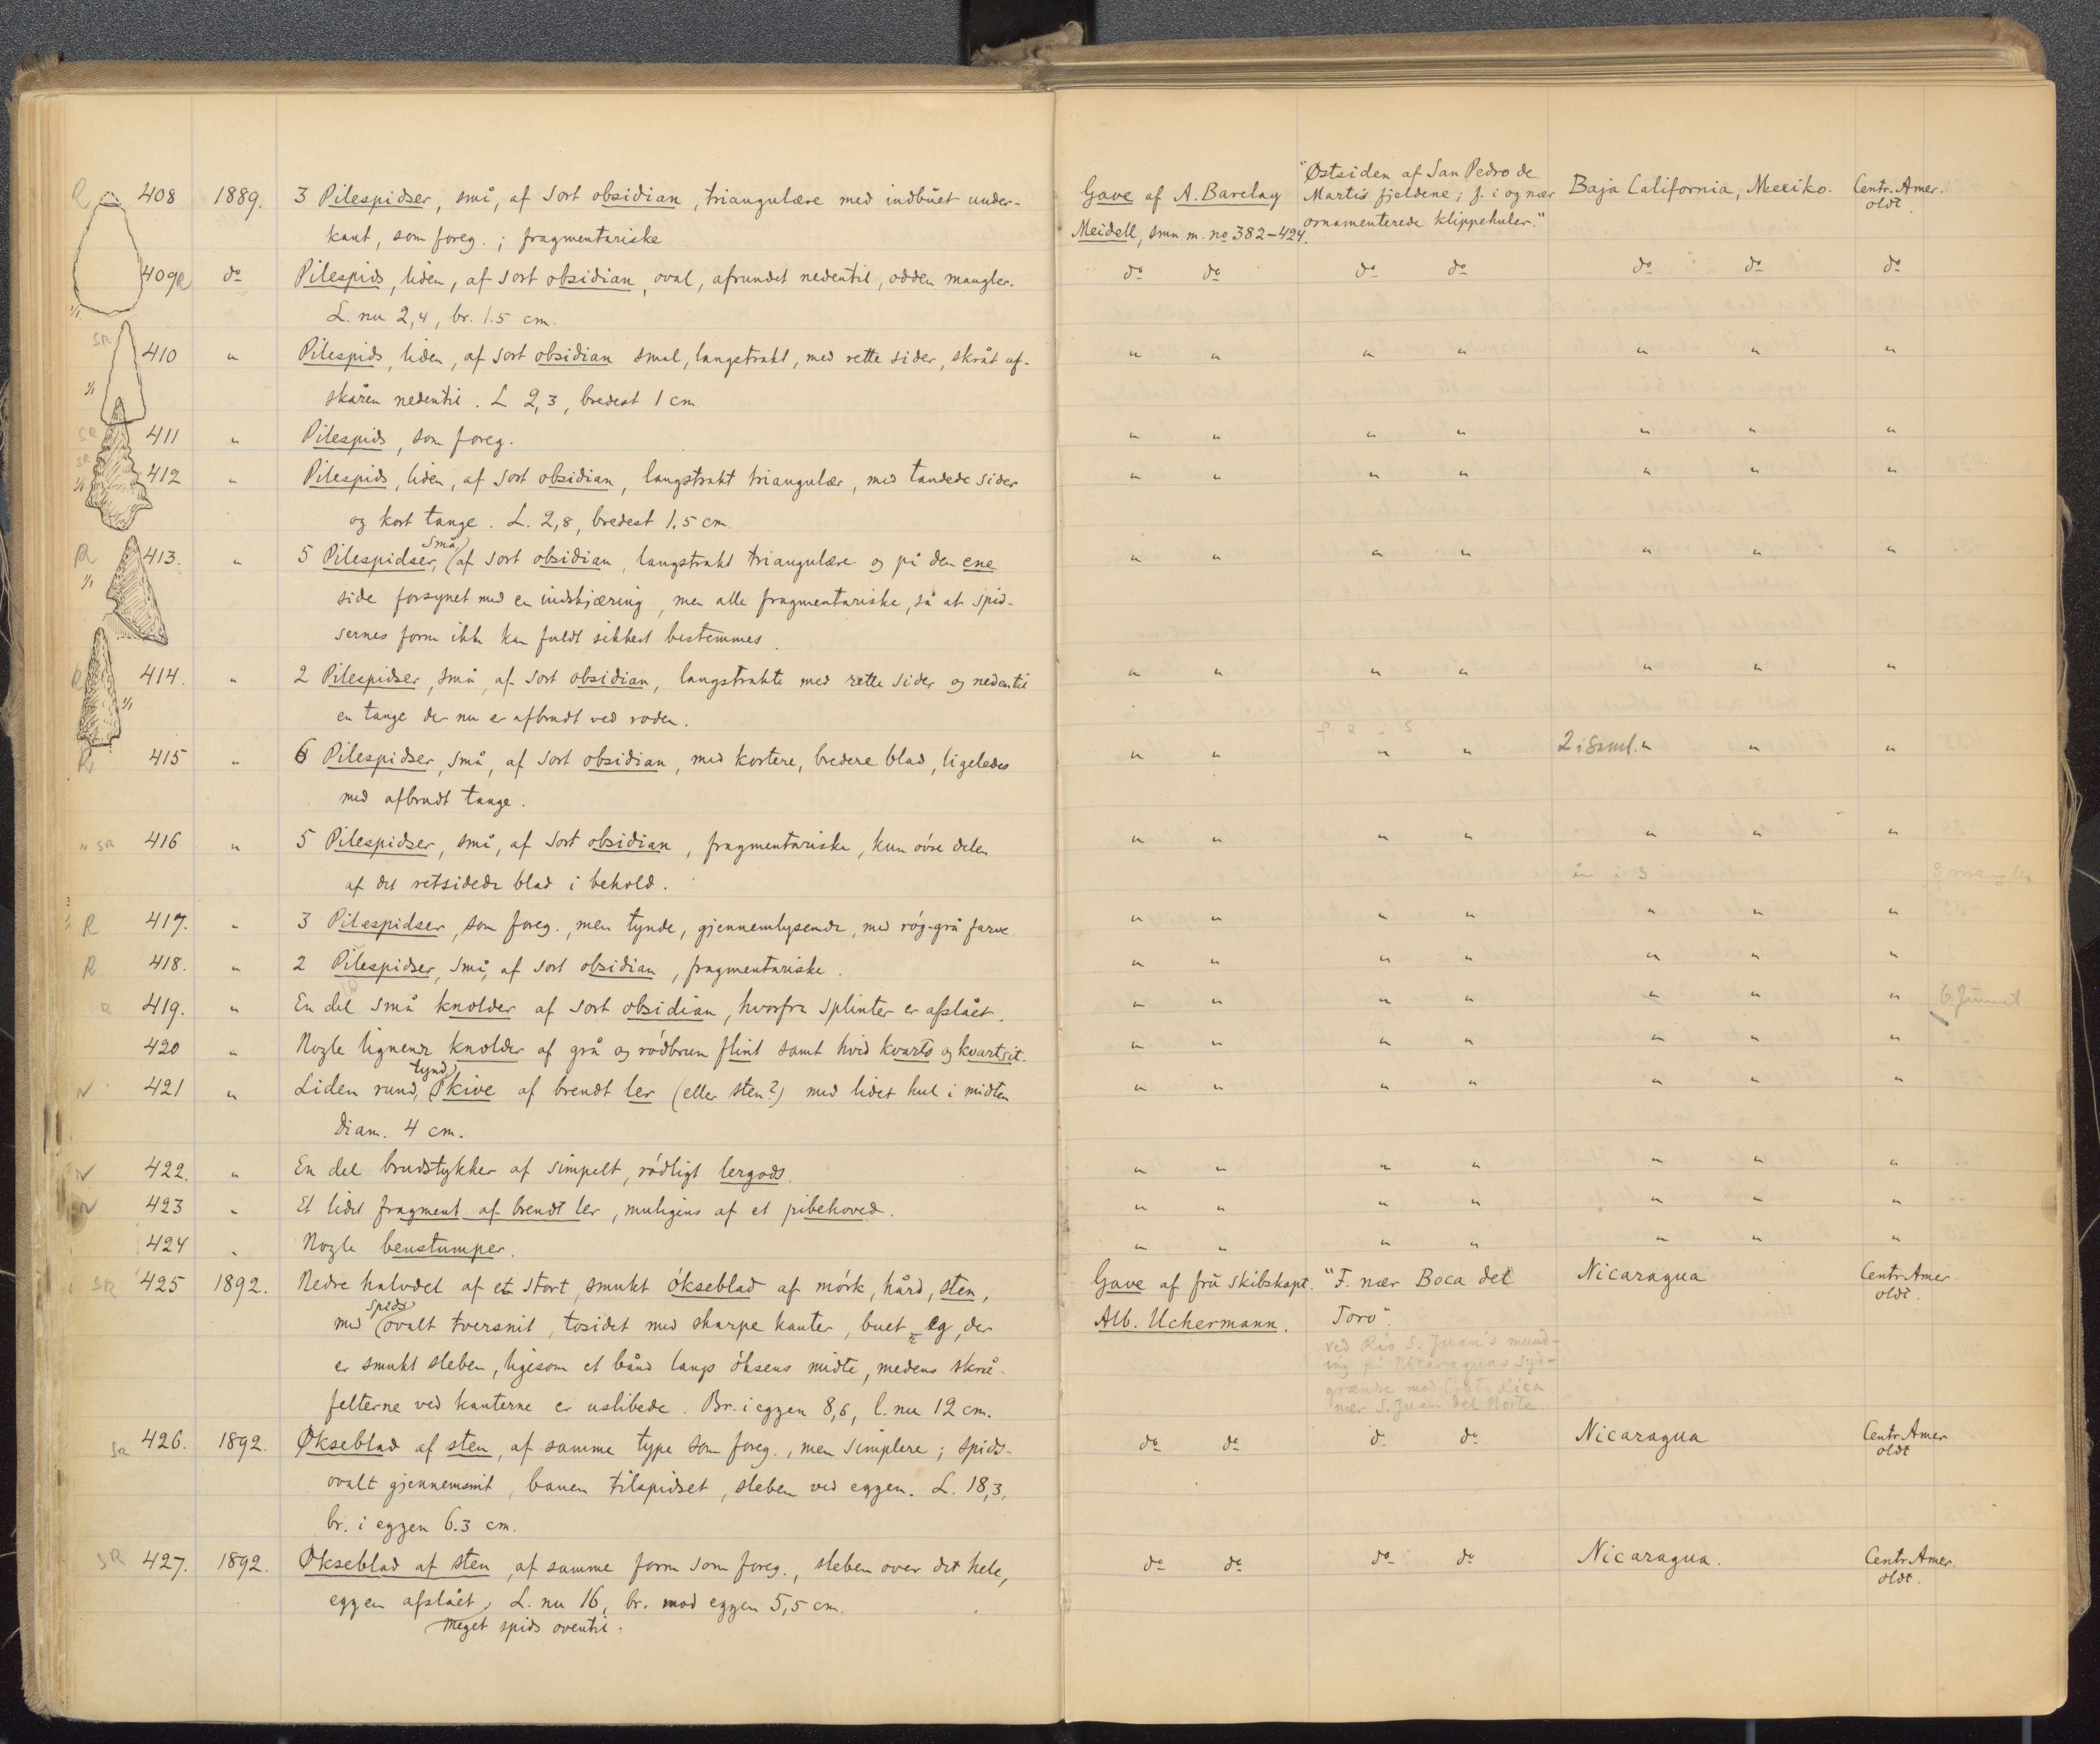 R 408 1889. 3 Pilespidser, små, af sort obsidian, triangulære med indbuet under- Gave af A. Barclay "Østsiden af San Pedro de Baja California, Mexiko. Centr. Amer.
kant, som foreg.; fragmentariske Meidell, smn m. no 382–424. Martis fjeldene; f. i og nær oldt.
ornamenterede klippehuler."
409 R do Pilespids, liden, af sort obsidian, oval, afrundet nedentil, odden mangler. do do do do do do do
1/1 L. nu 2,4, br. 1.5 cm.
SR 410 " Pilespids, liden, af sort obsidian smal, langstrakt, med rette sider, skråt af- " " " " " " "
1/1 skåren nedentil. L 2,3, bredest 1 cm.
SR 411 " Pilespids, som foreg. " " " " " " "
SR 1/1 412 " Pilespids, liden, af sort obsidian, langstrakt triangulær, med tandede sider " " " " " " "
og kort tange. L. 2,8, bredest 1.5 cm.
R 413. " 5 Pilespidser, små af sort obsidian, langstrakt triangulære og på den ene " " " " " " "
1/1 side forsynet med en indskjæring, men alle fragmentariske, så at spid-
sernes form ikke kan fuldt sikkert bestemmes.
R 414. " 2 Pilespidser, små, af sort obsidian, langstrakte med rette sider og nedentil " " " " " " "
1/1 en tange der nu er afbrudt ved roden.
R 415 " 6 Pilespidser, små, af sort obsidian, med kortere, bredere blad, ligeledes " " " " 2 i saml. " " "
med afbrudt tange.
SR 416 " 5 Pilespidser, små, af sort obsidian, fragmentariske, kun øvre delen " " " " " " "
af det retsidede blad i behold. 3 mangler
R 417. " 3 Pilespidser, som foreg., men tynde, gjennemlysende, med røg-grå farve " " " " " " "
R 418. " 2 Pilespidser, små, af sort obsidian, fragmentariske. " " " " " " "
R 419. " En del små knolder af sort obsidian, hvorfra splinter er afslået. " " " " " " " 6 funnet
420 " Nogle lignende knolder af grå og rødbrun flint samt hvid kvarts og kvartsit. " " " " " " "
421 " Liden rund, tynd skive af brendt ler (eller sten?) med lidet hul i midten " " " " " " "
diam. 4 cm.
422. " En del brudstykker af simpelt, rødligt lergods. " " " " " " "
423 " Et lidet fragment af brendt ler, muligens af et pibehoved. " " " " " " "
424 " Nogle benstumper. " " " " " " "
SR 425 1892. Nedre halvdel af et stort, smukt økseblad af mørk, hård, sten, Gave af fru skibskapt. "F. nær Boca del Nicaragua Centr. Amer
med spids ovalt tversnit, tosidet med skarpe kanter, buet eg, der Alb. Uchermann. Toro". oldt.
er smukt sleben, ligesom et bånd langs øksens midte, medens skrå- ved Rio S. Juan's mund-
ing på Nicaraguas syd-
felterne ved kanterne er uslibede. Br. i eggen 8,6, l. nu 12 cm. grænse mod Costa Rica
nær S. Juan del Norte
SR 426. 1892. Økseblad af sten, af samme type som foreg., men simplere; spids- do do do do Nicaragua Centr. Amer
ovalt gjennemsnit, banen tilspidset, sleben ved eggen. L. 18,3, oldt
br. i eggen 6.3 cm.
SR 427. 1892. Økseblad af sten, af samme form som foreg., sleben over det hele, do do do do Nicaragua. Centr. Amer.
eggen afslået, L. nu 16, br. mod eggen 5,5 cm. oldt.
meget spids oventil.